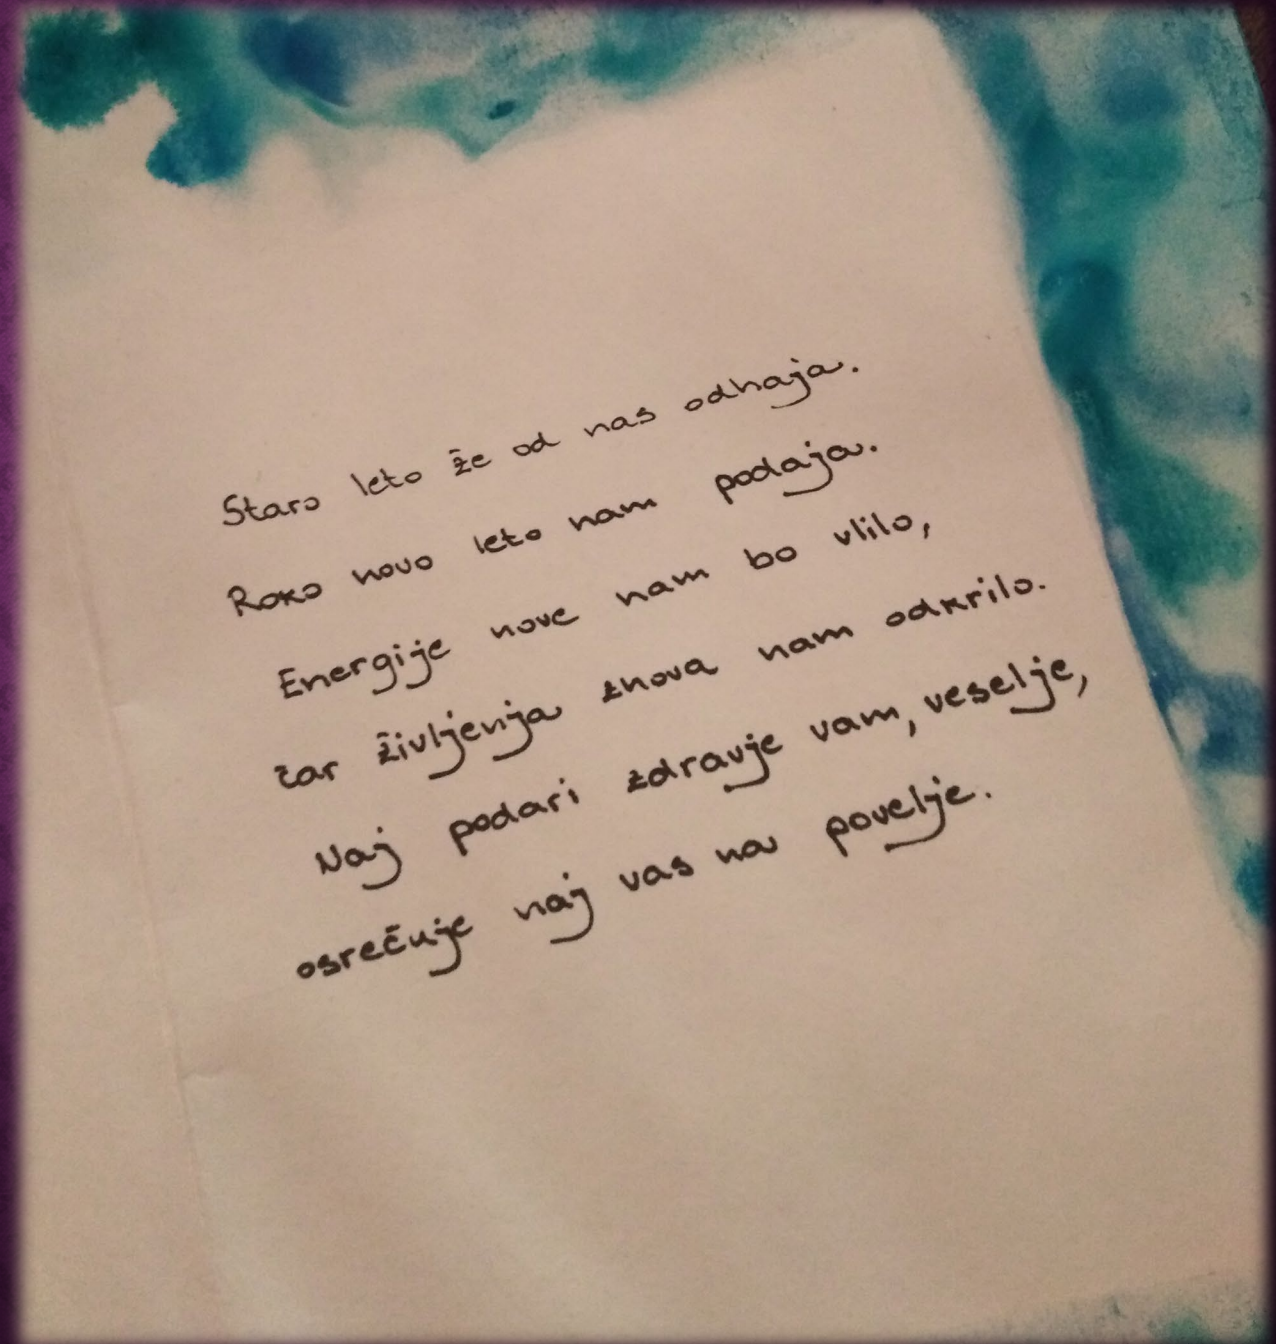 Staro leto že od nas odhaja.
Roko novo leto nam podaja.
Energije nove nam bo vlilo,
čar življenja znova nam odkrilo.
Naj podari zdravje vam, veselje,
osrečuje naj vas na povelje.